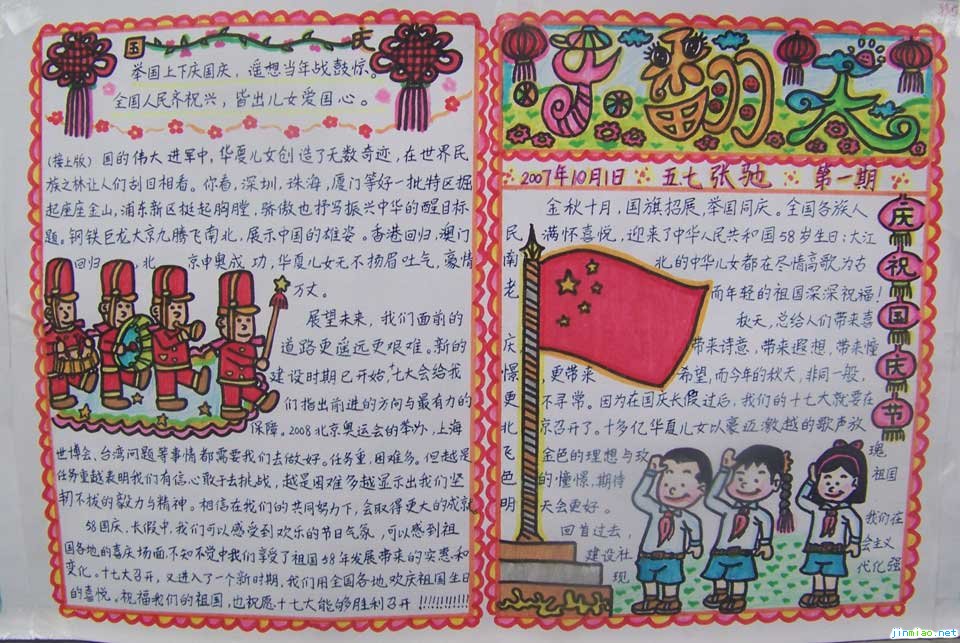 乐翻天
2007年10月1日 五.七 张驰 第一期
庆祝国庆节
金秋十月，国旗招展，举国同庆。全国各族人
民，满怀喜悦，迎来了中华人民共和国58岁生日；大江
南北的中华儿女都在尽情高歌，为古
老而年轻的祖国深深祝福！
秋天，总给人们带来喜
庆，带来诗意，带来遐想，带来憧
憬，更带来希望，而今年的秋天，非同一般，
更不寻常。因为在国庆长假过后，我们的十七大就要在
北京召开了。十多亿华夏儿女以豪迈激越的歌声放
飞金色的理想与玫瑰
色的憧憬，期待祖国
明天会更好。
回首过去，我们在
建设社会主义
现代化强
国庆
举国上下庆国庆，遥想当年战鼓惊。
全国人民齐祝兴，皆出儿女爱国心。
(接上版) 国的伟大进军中，华夏儿女创造了无数奇迹，在世界民
族之林让人们刮目相看。你看，深圳，珠海，厦门等好一批特区掘
起座座金山，浦东新区挺起胸膛，骄傲也抒写振兴中华的醒目标
题。钢铁巨龙大京九腾飞南北，展示中国的雄姿。香港回归，澳门
回归，北京申奥成功，华夏儿女无不扬眉吐气，豪情
万丈。
展望未来，我们面前的
道路更遥远更艰难。新的
建设时期已开始，十七大会给我
们指出前进的方向与最有力的
保障。2008北京奥运会的举办，上海
世博会、台湾问题等事情都需要我们去做好。任务重，困难多。但越是
任务重越表明我们有信心敢于去挑战，越是困难多越显示出我们坚
韧不拔的毅力与精神。相信在我们的共同努力下，会取得更大的成就
58国庆，长假中，我们可以感受到欢乐的节日气氛，可以感到祖
国各地的喜庆场面，不知不觉中我们享受了祖国58年发展带来的实惠和
变化。十七大召开，又进入了一个新时期，我们用全国各地欢庆祖国生日
的喜悦。祝福我们的祖国，也祝愿十七大能够胜利召开!!!!!!!!!!!
jinmiao.net